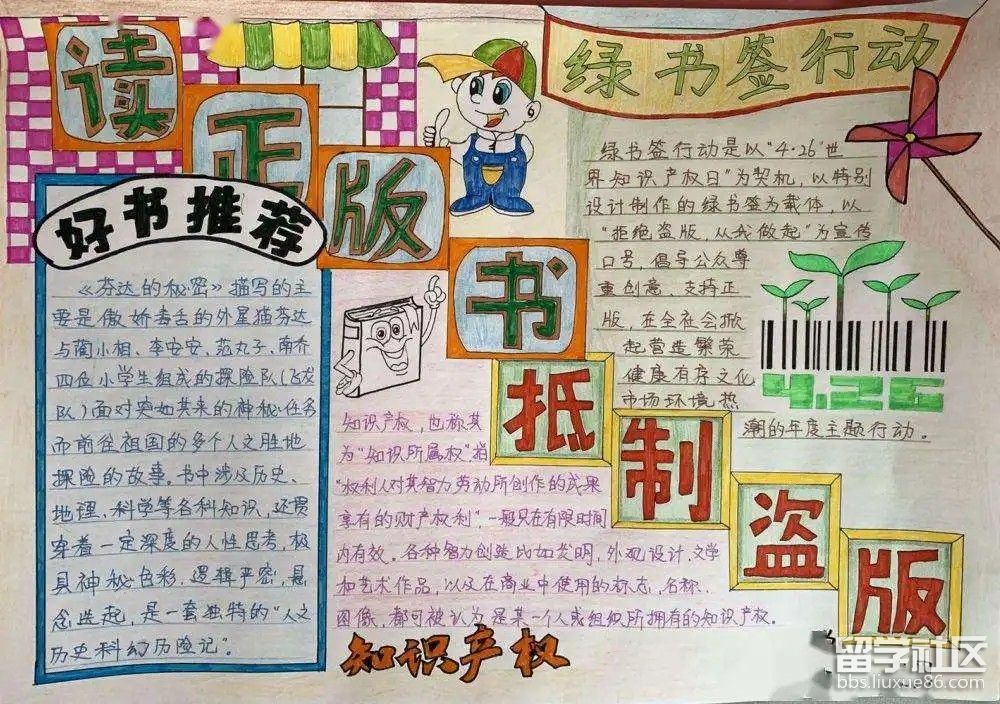 读正版书
抵制盗版
绿书签行动
绿书签行动是以"4·26"世
界知识产权日"为契机，以特别
设计制作的绿书签为载体，以
"拒绝盗版，从我做起"为宣传
口号，倡导公众尊
重创意、支持正
版，在全社会掀
起营造繁荣
健康有序文化
市场环境热
潮的年度主题行动。
4.26
好书推荐
《芬达的秘密》描写的主
要是傲娇毒舌的外星猫芬达
与蔺小相、李安安、范丸子、南乔
四位小学生组成的探险队(飞龙
队)面对突如其来的神秘任务
而前往祖国的多个人文胜地
探险的故事。书中涉及历史、
地理、科学等各科知识，还贯
穿着一定深度的人性思考，极
具神秘色彩，逻辑严密，悬
念迭起，是一套独特的"人文
历史科幻历险记"。
知识产权，也称其
为"知识所属权"指
"权利人对其智力劳动所创作的成果
享有的财产权利"，一般只在有限时间
内有效。各种智力创造比如发明，外观设计、文学
和艺术作品，以及在商业中使用的标志，名称，
图像，都可被认为是某一个人或组织所拥有的知识产权。
知识产权
留学社区
bbs.liuxue86.com